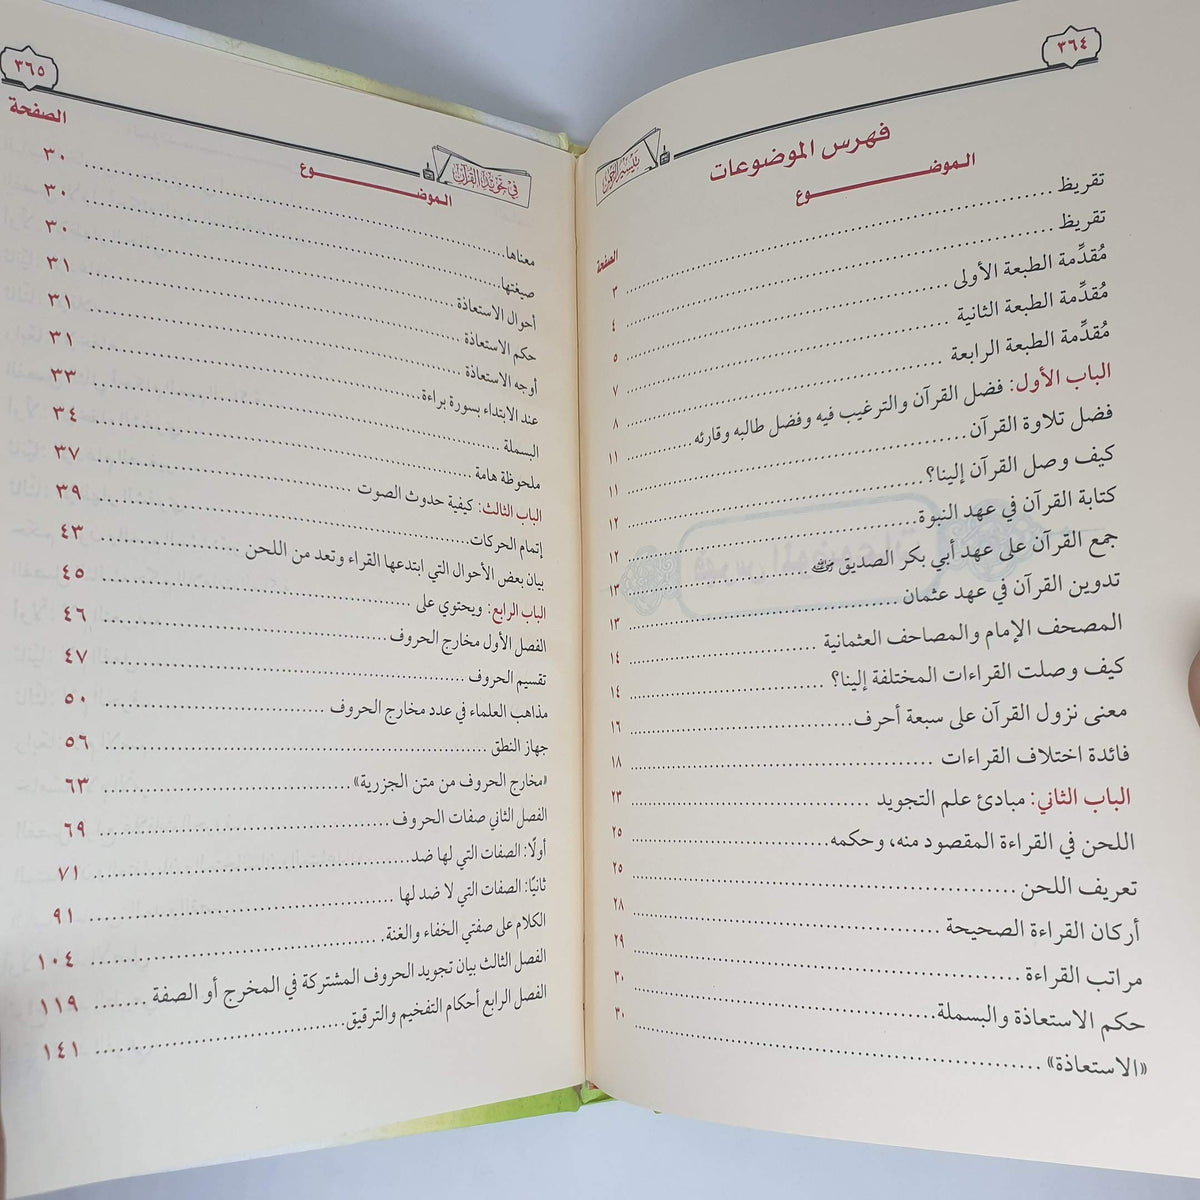 ٣٦٤
تيسير الرحمن
فهرس الموضوعات
الموضــــــوع الصفحة
تقريظ ........ ٣
تقريظ ........ ٤
مُقدِّمة الطبعة الأولى ........ ٥
مُقدِّمة الطبعة الثانية ........ ٧
مُقدِّمة الطبعة الرابعة ........ ٨
الباب الأول: فضل القرآن والترغيب فيه وفضل طالبه وقارئه ........ ١١
فضل تلاوة القرآن ........ ١١
كيف وصل القرآن إلينا؟ ........ ١٢
كتابة القرآن في عهد النبوة ........ ١٢
جمع القرآن على عهد أبي بكر الصديق رضي الله عنه ........ ١٣
تدوين القرآن في عهد عثمان ........ ١٣
المصحف الإمام والمصاحف العثمانية ........ ١٤
كيف وصلت القراءات المختلفة إلينا؟ ........ ١٤
معنى نزول القرآن على سبعة أحرف ........ ١٦
فائدة اختلاف القراءات ........ ١٨
الباب الثاني: مبادئ علم التجويد ........ ٢٣
اللحن في القراءة المقصود منه، وحكمه ........ ٢٥
تعريف اللحن ........ ٢٥
أركان القراءة الصحيحة ........ ٢٨
مراتب القراءة ........ ٢٩
حكم الاستعاذة والبسملة ........ ٣٠
«الاستعاذة» ........ ٣٠
٣٦٥
في تجويد القرآن
الموضــــــوع الصفحة
معناها ........ ٣٠
صيغتها ........ ٣٠
أحوال الاستعاذة ........ ٣٠
حكم الاستعاذة ........ ٣١
أوجه الاستعاذة ........ ٣١
عند الابتداء بسورة براءة ........ ٣١
البسملة ........ ٣٣
ملحوظة هامة ........ ٣٤
الباب الثالث: كيفية حدوث الصوت ........ ٣٧
إتمام الحركات ........ ٣٩
بيان بعض الأحوال التي ابتدعها القراء وتعد من اللحن ........ ٤٣
الباب الرابع: ويحتوي على ........ ٤٥
الفصل الأول مخارج الحروف ........ ٤٦
تقسيم الحروف ........ ٤٧
مذاهب العلماء في عدد مخارج الحروف ........ ٥٠
جهاز النطق ........ ٥٦
«مخارج الحروف من متن الجزرية» ........ ٦٣
الفصل الثاني صفات الحروف ........ ٦٩
أولًا: الصفات التي لها ضد ........ ٧١
ثانيًا: الصفات التي لا ضد لها ........ ٩١
الكلام على صفتي الخفاء والغنة ........ ١٠٤
الفصل الثالث بيان تجويد الحروف المشتركة في المخرج أو الصفة ........ ١١٩
الفصل الرابع أحكام التفخيم والترقيق ........ ١٤١